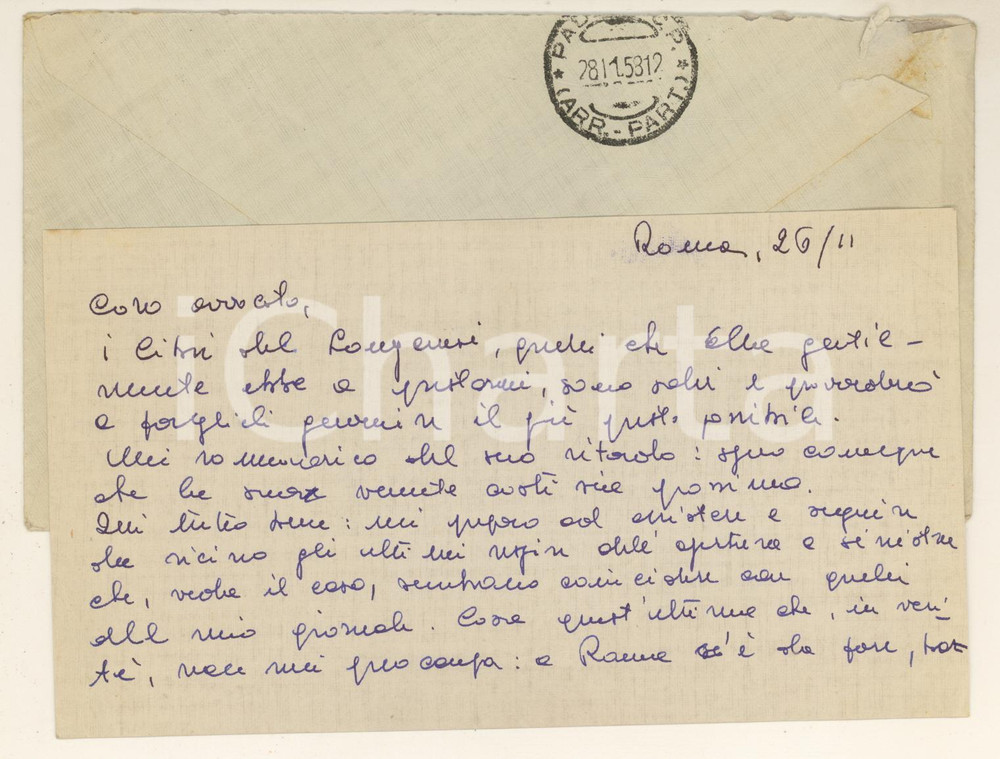 PAD C.P.
28 11.58 12
(ARR.-PART.)
Roma, 26/11
Caro avvocato,
i libri del Longanesi, quelli che Ella gentil-
mente ebbe a prestarmi, sono salvi e
a fargli il più presto possibile.
Mi rammarico del suo ritardo: spero comunque
che la sua venuta costì sia prossima.
Qui tutto bene: mi preparo ad assistere e seguire
da vicino gli ultimi dell'apertura a sinistra
che, veda il caso, sembrano coincidere con quelli
del mio giornale. Cosa quest'ultima che, in veri-
tà, non mi preoccupa: a Roma c'è da fare,
iCharta